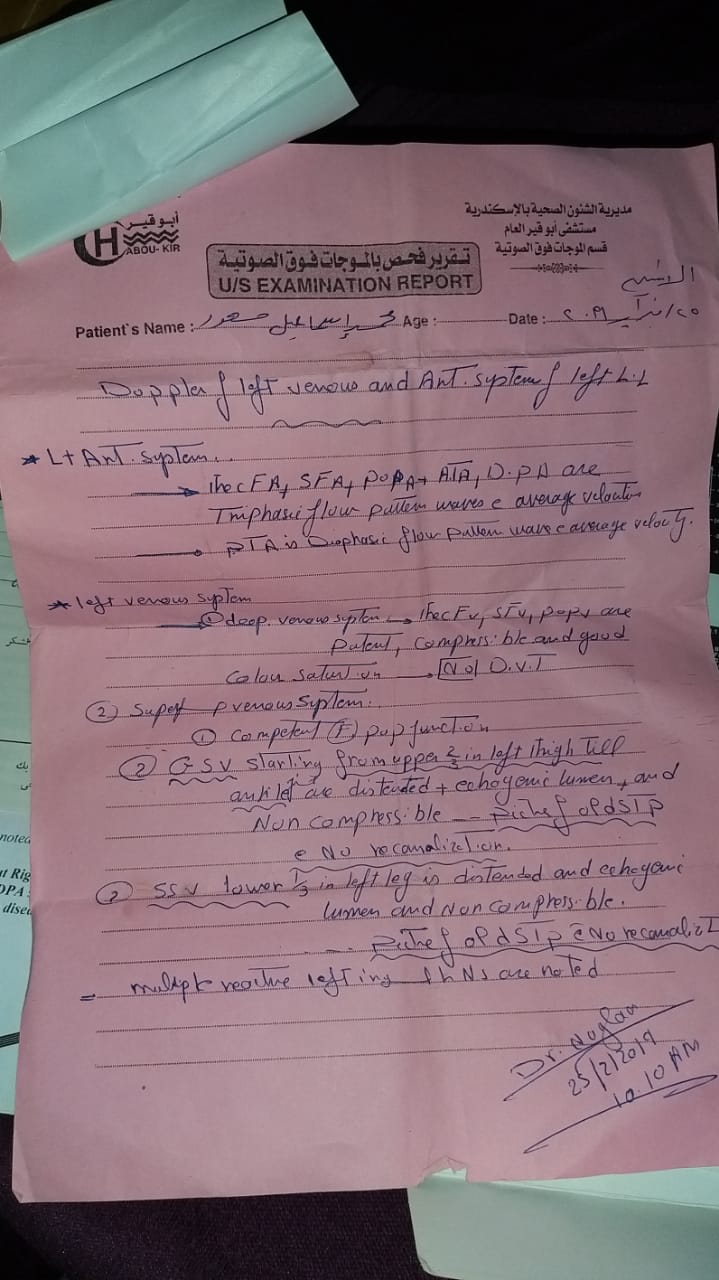 مديرية الشئون الصحية بالإسكندرية
مستشفى أبو قير العام
قسم الموجات فوق الصوتية
أبو قير
CH
ABOU-KIR
تقرير فحص بالموجات فوق الصوتية
U/S EXAMINATION REPORT
Patient`s Name : اسماعيل Age : Date :
Doppler of left venous and Art. system of left L.L
* Lt Art. system..
The CFA, SFA, POPA + ATA, D.P.A are
Triphasic flow pattern waves c average
PTA is flow pattern wave c average velocity.
* left venous system
① deep. venous system → The CFV, SFV, popV are
Patent, compressible and good
colour → No D.V.T
② venous system..
① competent junction
② GSV starting from upper 2/3 in left thigh till
are distended + echogenic lumen, and
Non compressible __ of old STP
c No recanalization.
③ SSV lower 1/3 in left leg is distended and echogenic
lumen and Non compressible.
of old STP c No
= multiple left ing LNs are noted
Dr. Noglaa
25/2/2019
10.10 AM
noted
at Rig
DPA